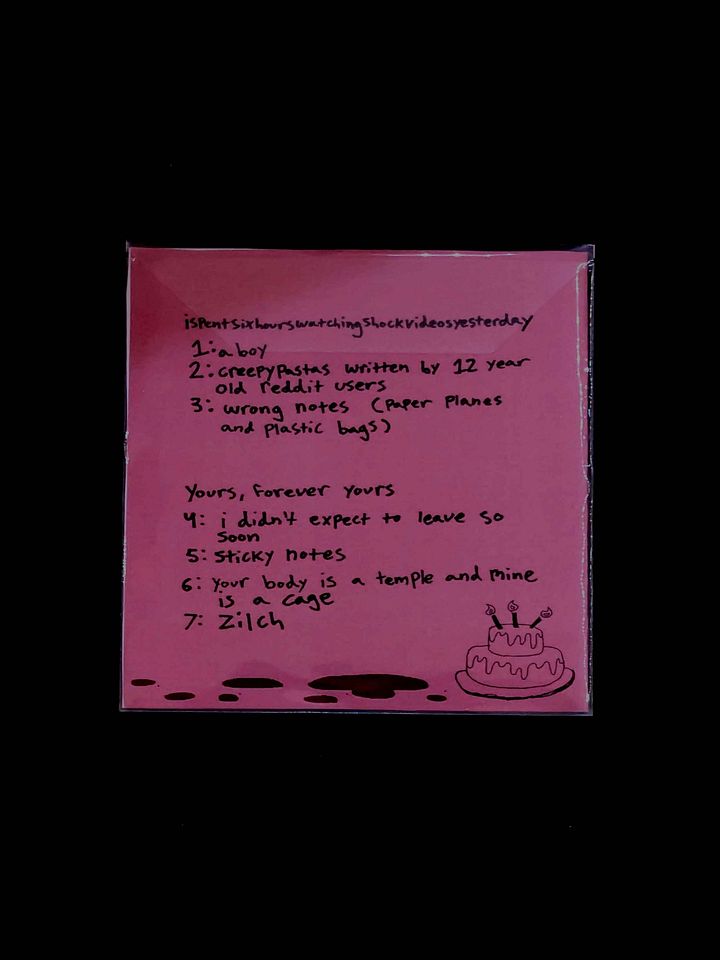 ispentsixhourswatchingshockvideosyesterday
1: a boy
2: creepypastas written by 12 year
old reddit users
3: wrong notes (paper planes
and plastic bags)
yours, forever yours
4: i didn't expect to leave so
soon
5: sticky notes
6: your body is a temple and mine
is a cage
7: zilch